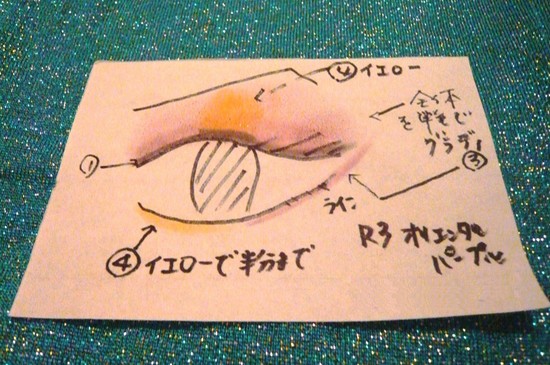 ④イエロー
全体
を単色で
グラデ
①
③
ライン
R3 オリエンタル
パープル
④イエローで半分まで